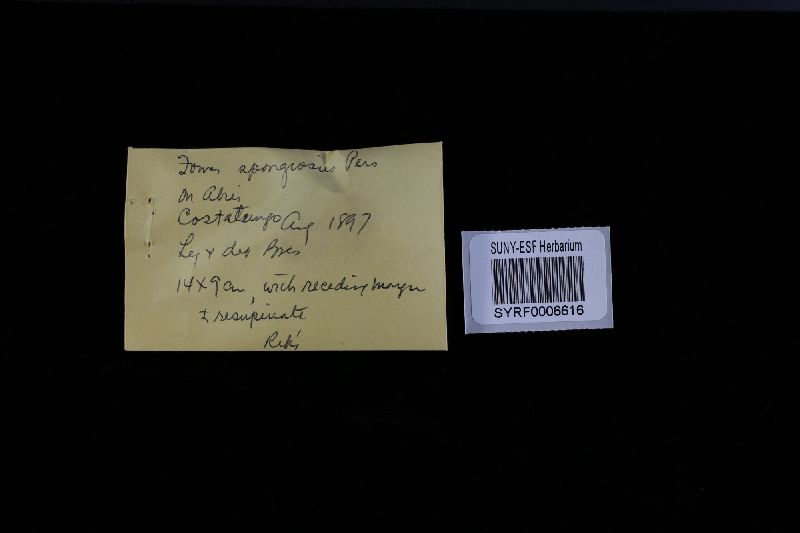 Fomes spongiosus Pers
on Abies
Costalunga Aug 1897
Leg & det Bres
14x9 cm, with receding margin
± resupinate
SUNY-ESF Herbarium
SYRF0006616